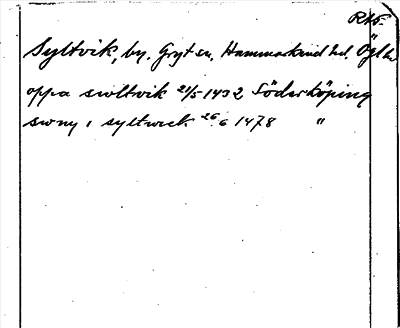 RA5.
Syltvik, by. Gryt sn. Hammarkind hd. Ögl
oppa swltvik 21/5 1432 Söderköping
swny i syltweck 26/6 1478 "